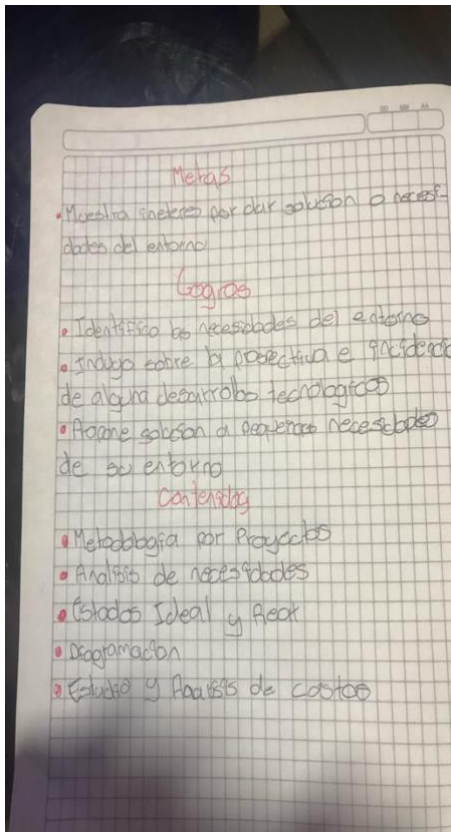 DD MM AA
Metas
• Muestra interes por dar solucion a necesi-
dades del entorno
Logros
• Identifico las necesidades del entorno
• Indago sobre la prospectiva e incidencia
de alguna desarrollos tecnologicos
• Propone solucion a pequeñas necesidades
de su entorno
Contenidos
• Metodologia por Proyectos
• Analisis de necesidades
• Estados Ideal y Real
• Diagramacion
• Estudio y Analisis de costos